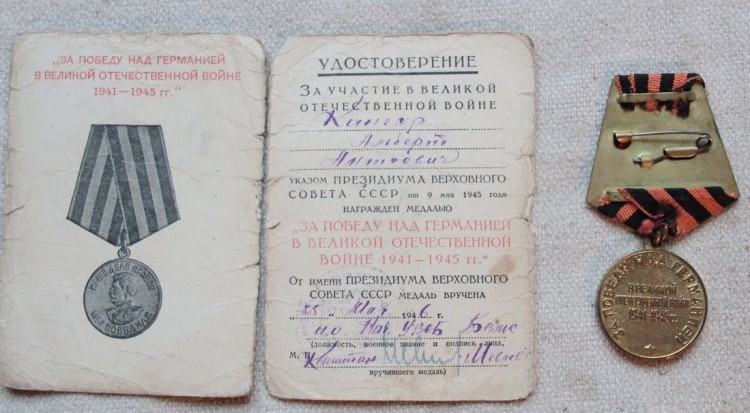 „ЗА ПОБЕДУ НАД ГЕРМАНИЕЙ
В ВЕЛИКОЙ ОТЕЧЕСТВЕННОЙ ВОЙНЕ
1941—1945 гг."
НАШЕ ДЕЛО ПРАВОЕ
МЫ ПОБЕДИЛИ
УДОСТОВЕРЕНИЕ
ЗА УЧАСТИЕ В ВЕЛИКОЙ
ОТЕЧЕСТВЕННОЙ ВОЙНЕ
Альберт
Антонович
УКАЗОМ ПРЕЗИДИУМА ВЕРХОВНОГО
СОВЕТА СССР от 9 мая 1945 года
НАГРАЖДЕН МЕДАЛЬЮ
„ЗА ПОБЕДУ НАД ГЕРМАНИЕЙ
В ВЕЛИКОЙ ОТЕЧЕСТВЕННОЙ
ВОЙНЕ 1941—1945 гг."
От имени ПРЕЗИДИУМА ВЕРХОВНОГО
СОВЕТА СССР МЕДАЛЬ ВРУЧЕНА
„25" Мая 1946
(должность, военное звание и подпись лица,
М. П.
вручившего медаль)
ЗА ПОБЕДУ НАД ГЕРМАНИЕЙ
В ВЕЛИКОЙ
ОТЕЧЕСТВЕННОЙ ВОЙНЕ
1941-1945 гг.